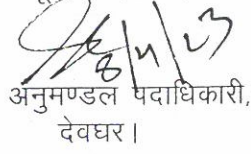 8/4/23
अनुमण्डल पदाधिकारी,
देवघर।